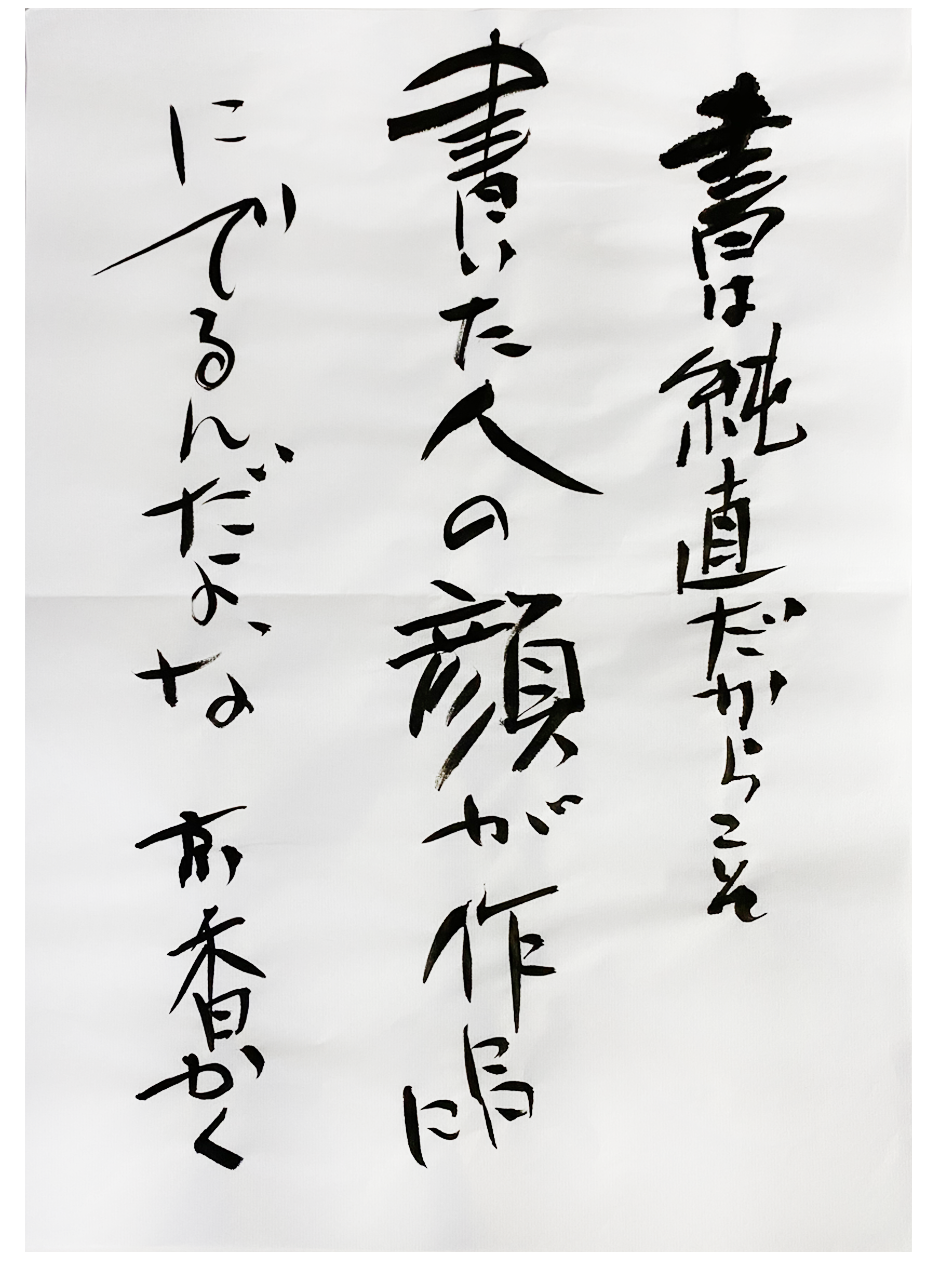 書は純直だからこそ
書いた人の顔が作品
にでるんだよな 京香かく